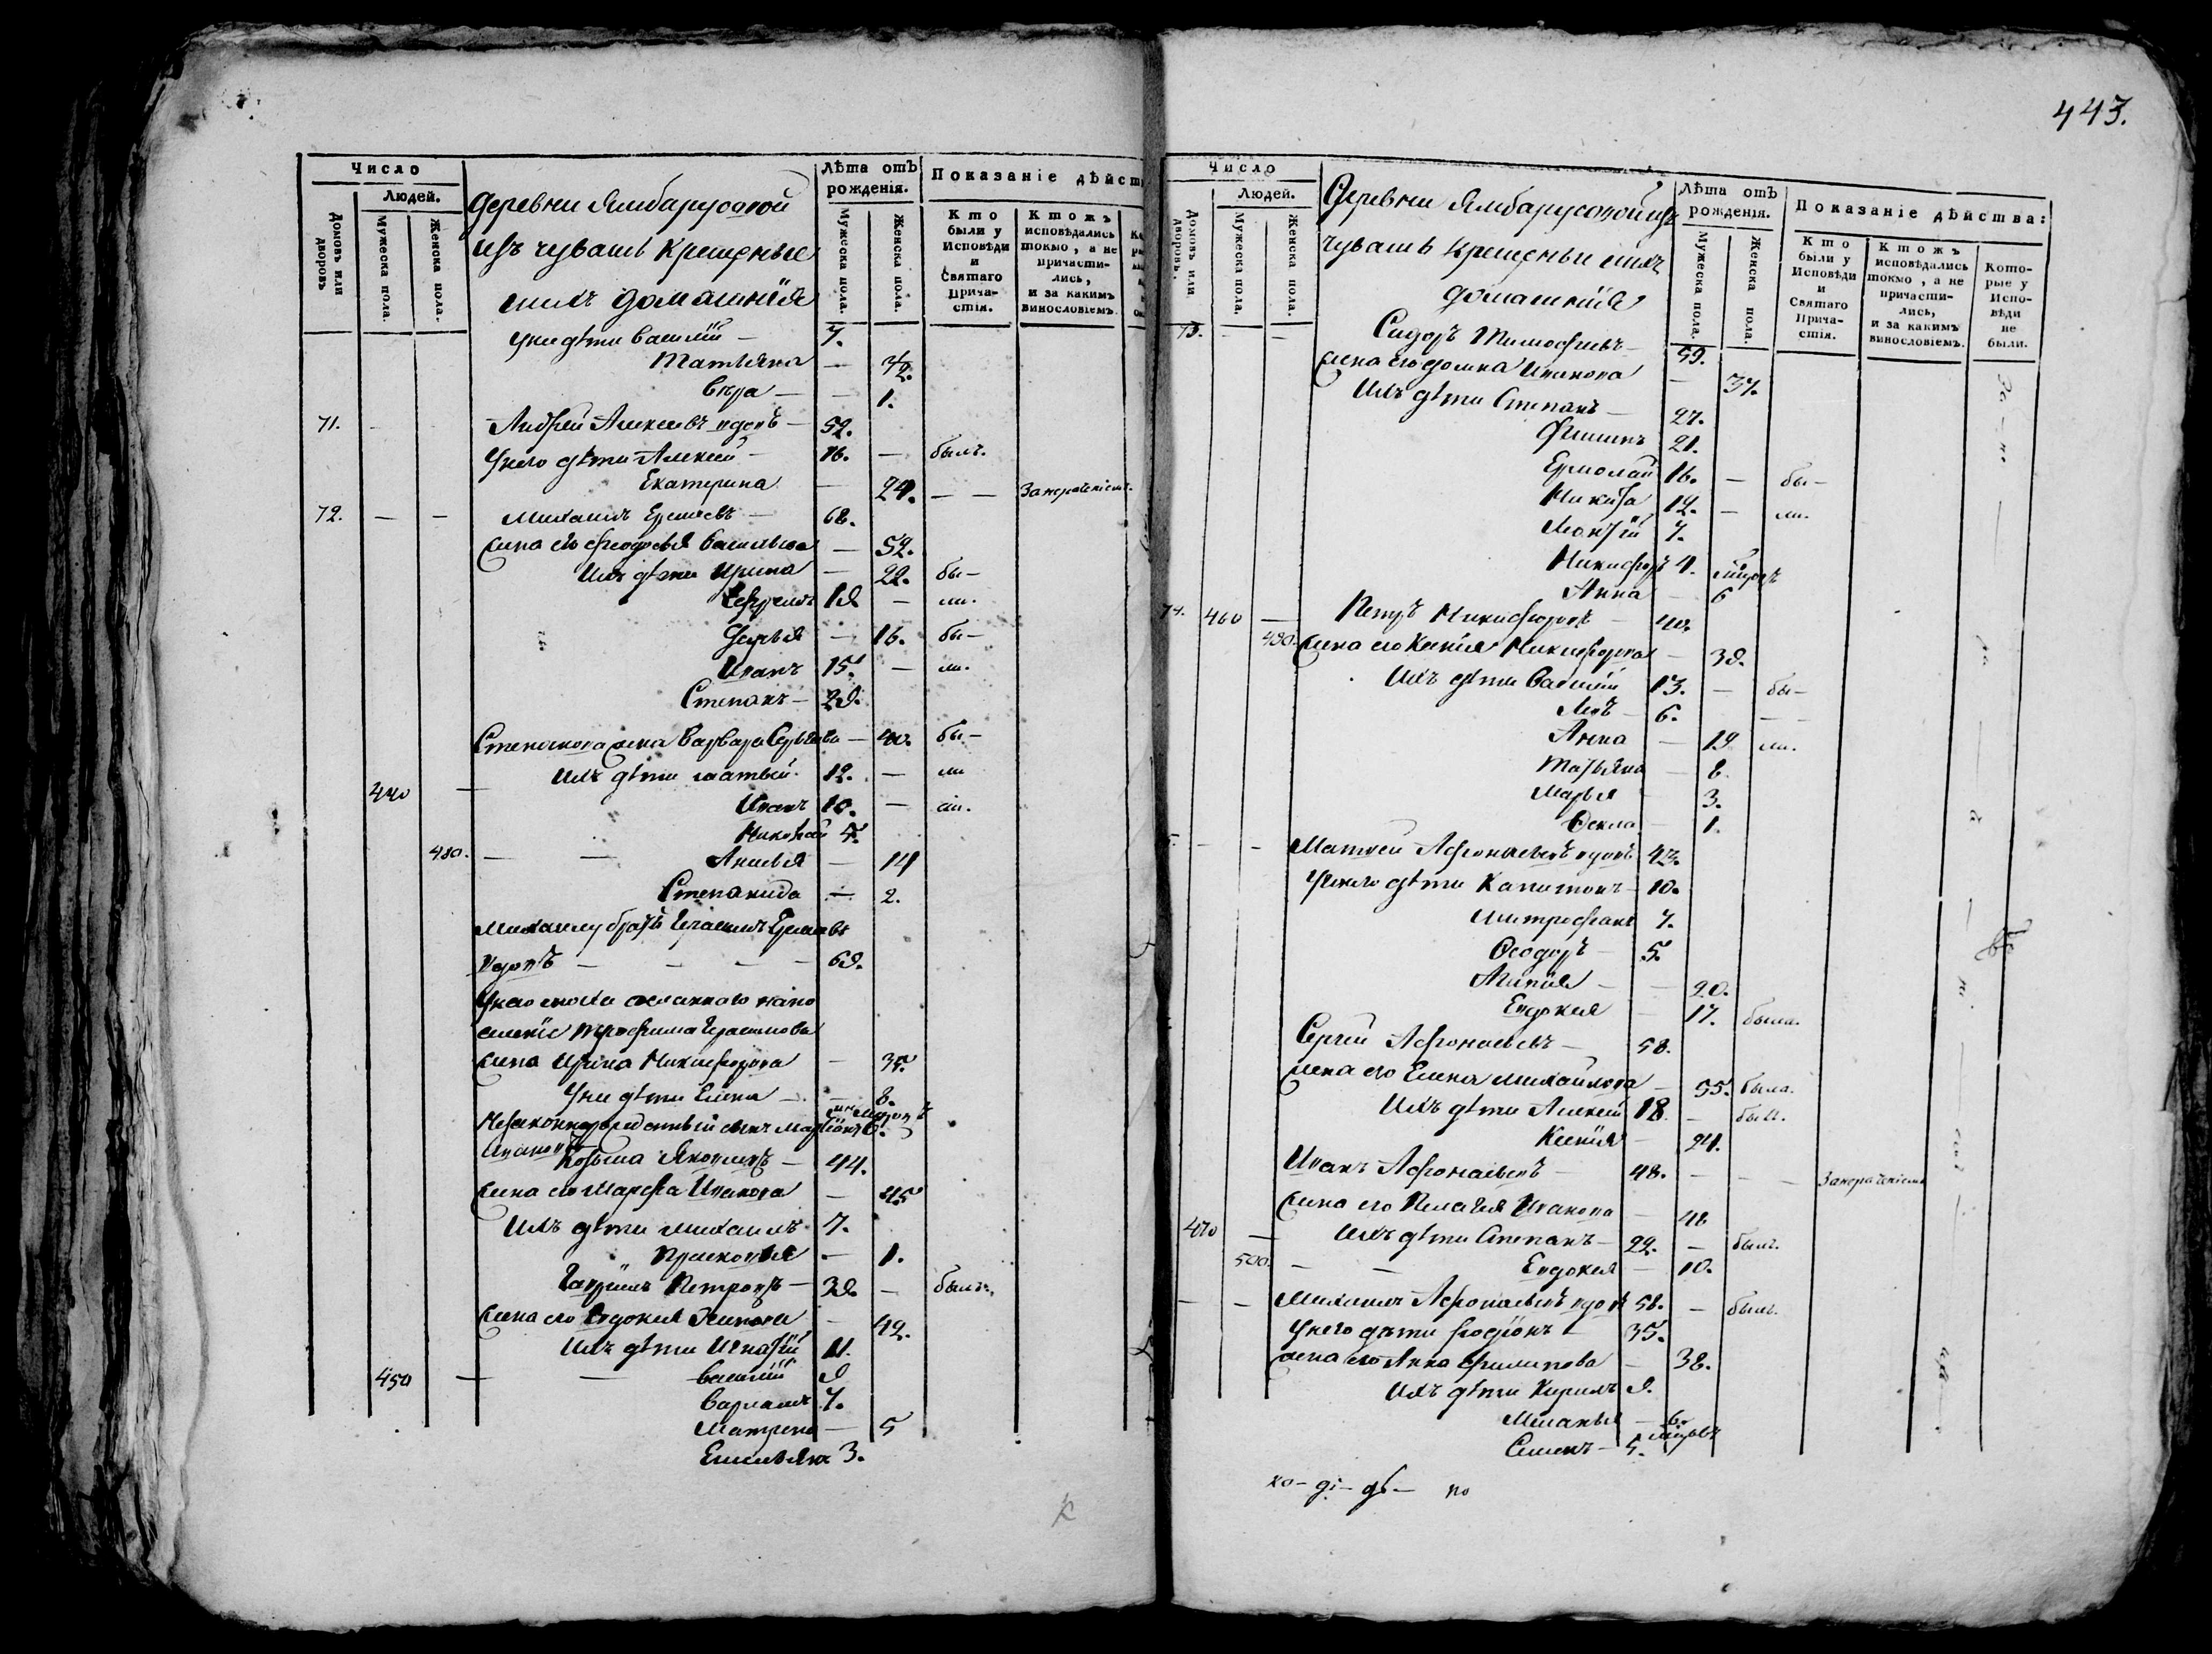 Число
Людей.
Домовъ или дворовъ
Мужеска пола.
Женска пола.
Деревни Ямбарусовой
изъ чувашъ крещеные
и ихъ домашнія
Лѣта отъ рожденія.
Мужеска пола.
Женска пола.
Показаніе дѣйст
Кто были у Исповѣди и Святаго Прича- стія.
Ктожъ исповѣдались токмо, а не причасти- лись, и за какимъ винословіемъ.
у нея дѣти Василій — 7.
Татьяна —
Вѣра — — 1.
71. Андрей Алексѣевъ вдовъ — 52.
у него дѣти Алексѣй — 16. — былъ.
Екатерина — 24. — —
72. — — Михаилъ — 68.
жена его Феодосья Васильева — 52.
Ихъ дѣти Ирина — 22. бы—
19 — ли.
Дарья — 16. бы—
Иванъ 15. — ли.
Степанъ — 29.
Степанова жена Варвара — 40. бы—
Ихъ дѣти Матвѣй 12. — ли
440 — Иванъ 10. — ли.
Николай 5.
480. — — Анисья — 14
Степанида — 2.
Михаилу братъ Герасимъ
вдовъ — — — — 69.
у него сноха сосланнаго на по
селеніе Трофима Герасимова
жена Ирина Никифорова — 35.
у ней дѣти Елена — — 8.
Незаконнорожденный сынъ
Ивановъ
Козьма Яковлевъ — 44.
жена его Марфа Иванова — 45
Ихъ дѣти Михаилъ 7.
Прасковья — 1.
Гаврiилъ Петровъ — 39. — былъ.
жена его Евдокия Осипова — 42.
Ихъ дѣти Игнатій 11.
450 — — Василій 9
Варлаамъ 7.
Матрена — 5
Емельянъ 3.
443.
Число
Людей.
Домовъ или дворовъ.
Мужеска пола.
Женска пола.
Деревни Ямбарусовой изъ
чувашъ крещеные и ихъ
домашнія
Лѣта отъ рожденія.
Мужеска пола.
Женска пола.
Показаніе дѣйства:
Кто были у Исповѣди и Святаго Прича- стія.
Ктожъ исповѣдались токмо, а не причасти- лись, и за какимъ винословіемъ.
Кото- рые у Испо- вѣди не были.
73. — — Сидоръ Тимофѣевъ — 59.
жена его Иванова — 37.
Ихъ дѣти Степанъ — 27.
Филипъ 21.
Ермолай 16. — бы—
Никита 12. — ли.
7.
Никифоръ 4.
Анна — 6
74. 460 — Петръ Никифоровъ — 40.
490. жена его Ксенія Никифорова — 39.
Ихъ дѣти Василій 13. — бы—
Левъ — 6. — —
Анна — 19 ли.
Татьяна — 8.
Марья — 3.
Ѳекла — 1.
— — Матвей Афонасьевъ вдовъ 43.
у него дѣти Капитонъ — 10.
Митрофанъ 7.
Ѳеодоръ — 5.
— — 20.
Евдокея — 17. была.
Сергѣй Афонасьевъ — 58.
жена его Елена Михайлова — 55. была.
Ихъ дѣти Алексѣй 18 — былъ.
Ксенія — 21.
Иванъ Афонасьевъ — 48. — — —
жена его Пелагея Иванова — 48
470 — Ихъ дѣти Степанъ — 22. — былъ.
500. — — Евдокея — 10.
— — Михаилъ Афонасьевъ вдовъ 58. — былъ.
у него дѣти Родіонъ — 35.
жена его Анна Филипова — 38.
Ихъ дѣти Кирилъ 9.
Меланья — 6.
Семенъ — 5.